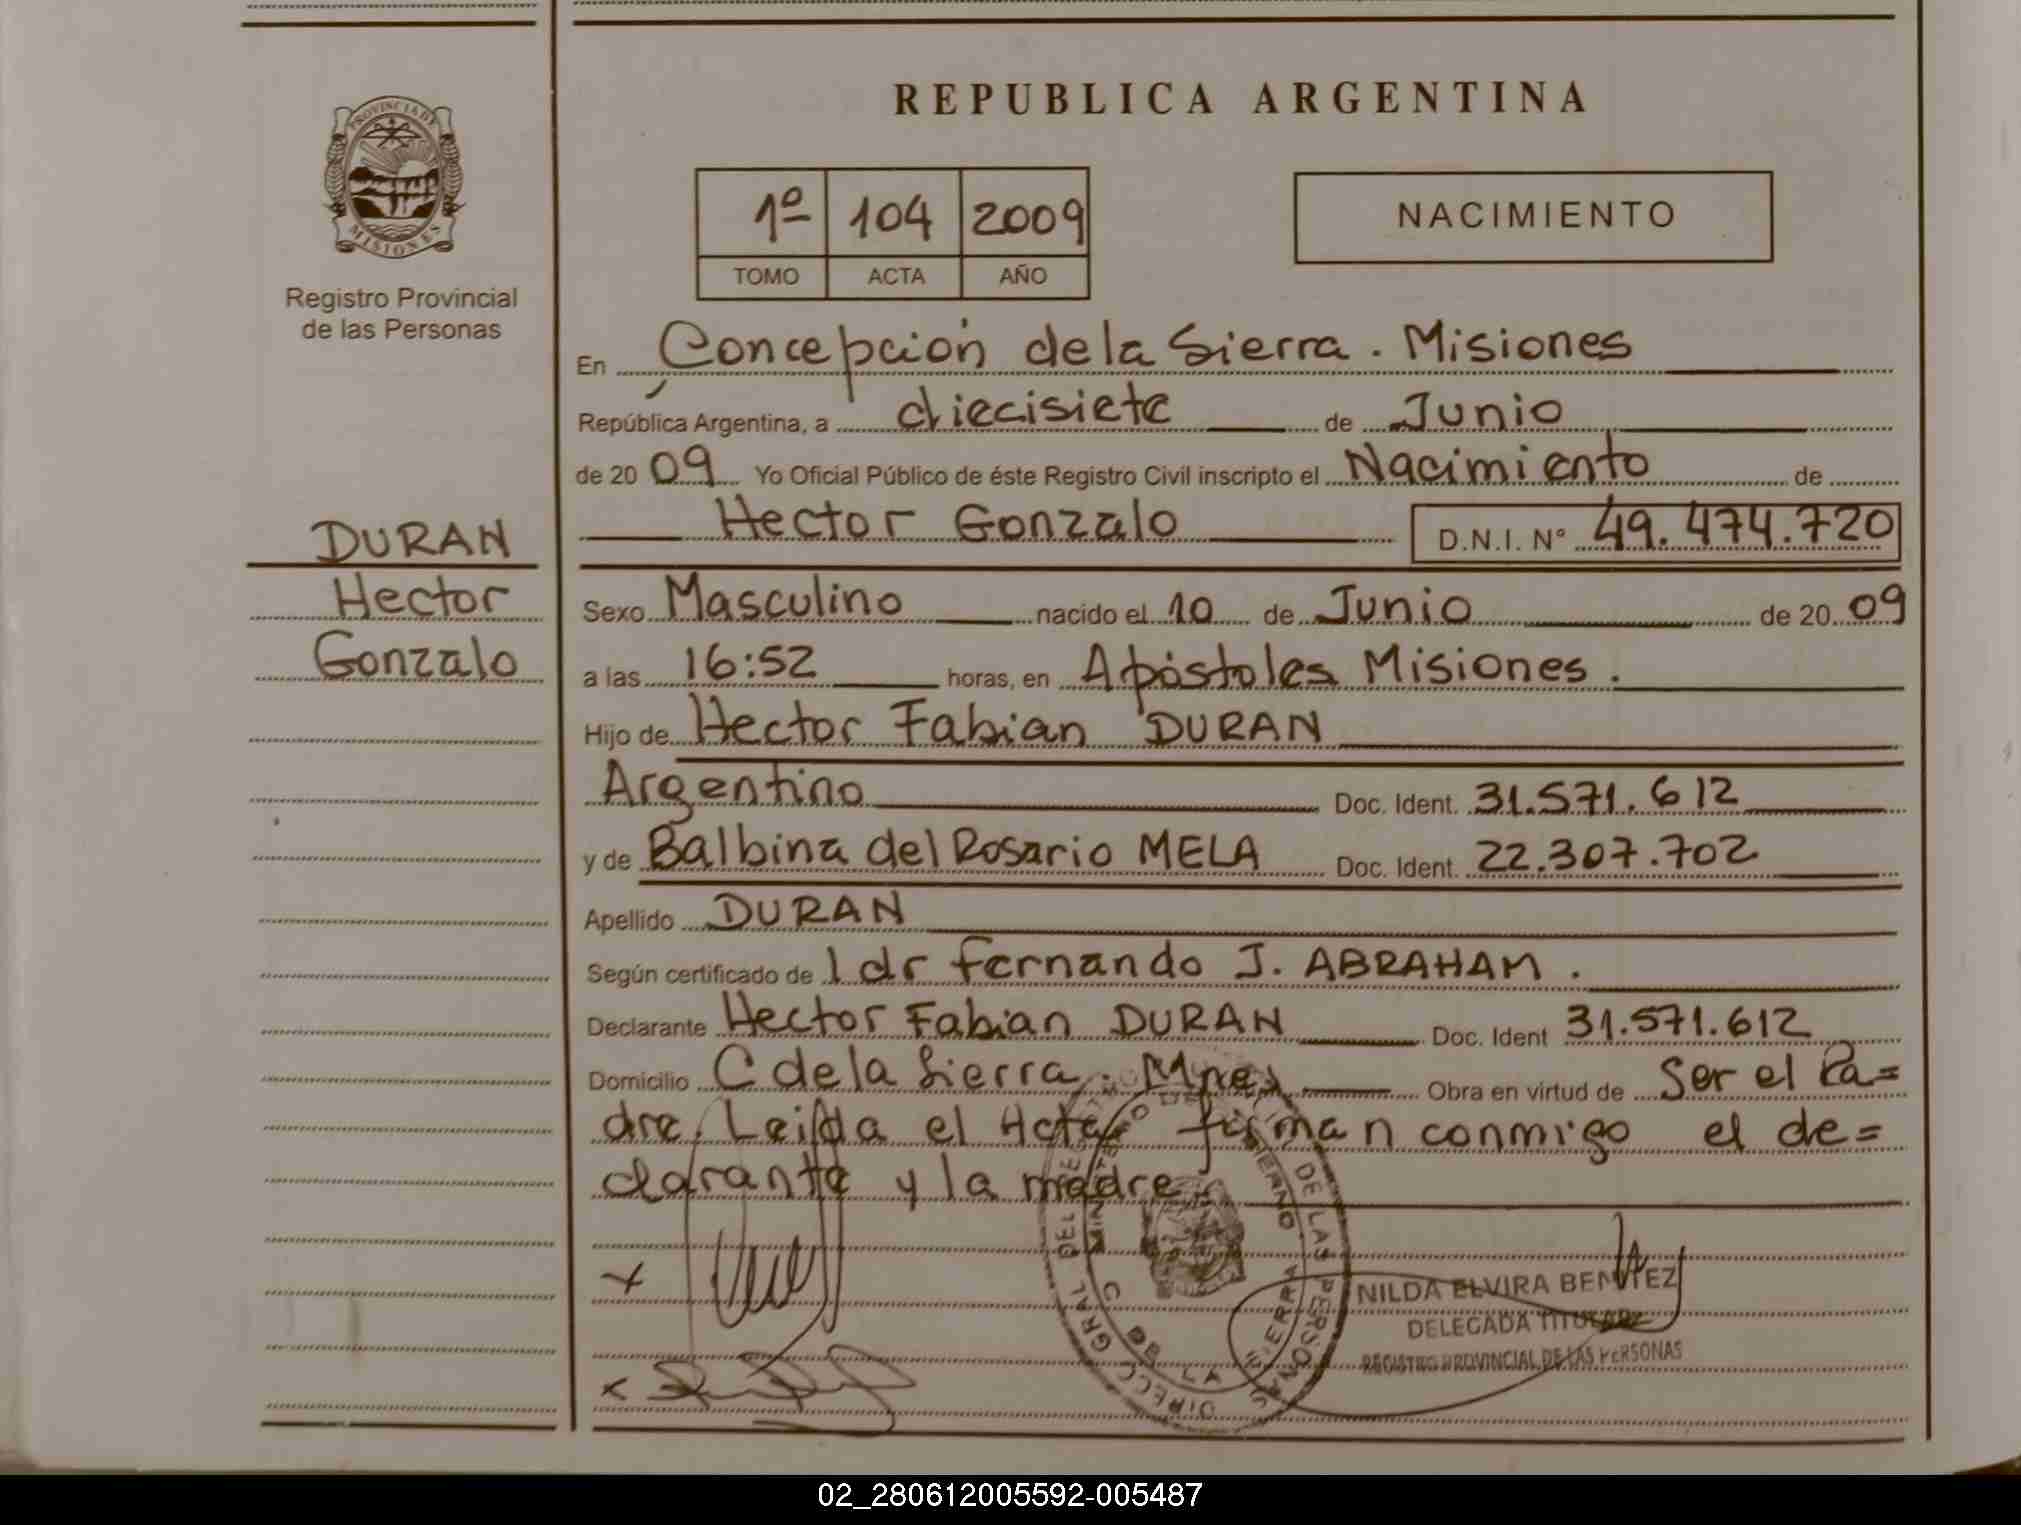 REPUBLICA ARGENTINA
PROVINCIA DE
MISIONES
Registro Provincial
de las Personas
1º 104 2009
TOMO ACTA AÑO
NACIMIENTO
DURAN
Hector
Gonzalo
En Concepción de la Sierra. Misiones
República Argentina, a diecisiete de Junio
de 2009 Yo Oficial Público de éste Registro Civil inscripto el Nacimiento de
Hector Gonzalo D.N.I. N° 49.474.720
Sexo Masculino nacido el 10 de Junio de 2009
a las 16:52 horas, en Apóstoles Misiones.
Hijo de Hector Fabian DURAN
Argentino Doc. Ident. 31.571.612
y de Balbina del Rosario MELA Doc. Ident. 22.307.702
Apellido DURAN
Según certificado de l dr Fernando J. ABRAHAM.
Declarante Hector Fabian DURAN Doc. Ident 31.571.612
Domicilio C de la Sierra. Mnes Obra en virtud de Ser el Pa=
dre. Leida el Acta firman conmigo el de=
clarante y la madre.
NILDA ELVIRA BENITEZ
DELEGADA TITULAR
REGISTRO PROVINCIAL DE LAS PERSONAS
DIRECC GRAL DEL REGISTRO DE LAS PERSONAS
02_280612005592-005487